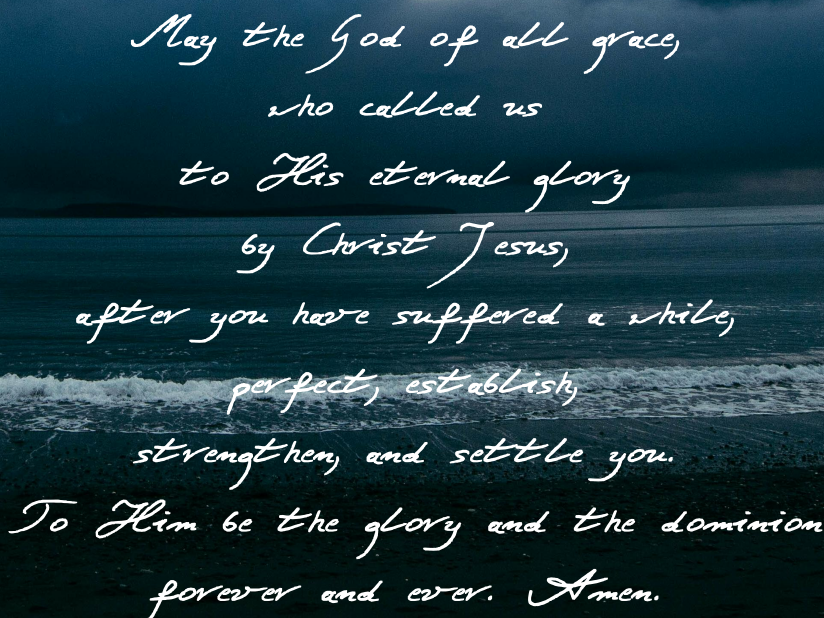 May the God of all grace,
who called us
to His eternal glory
by Christ Jesus,
after you have suffered a while,
perfect, establish,
strengthen, and settle you.
To Him be the glory and the dominion
forever and ever. Amen.